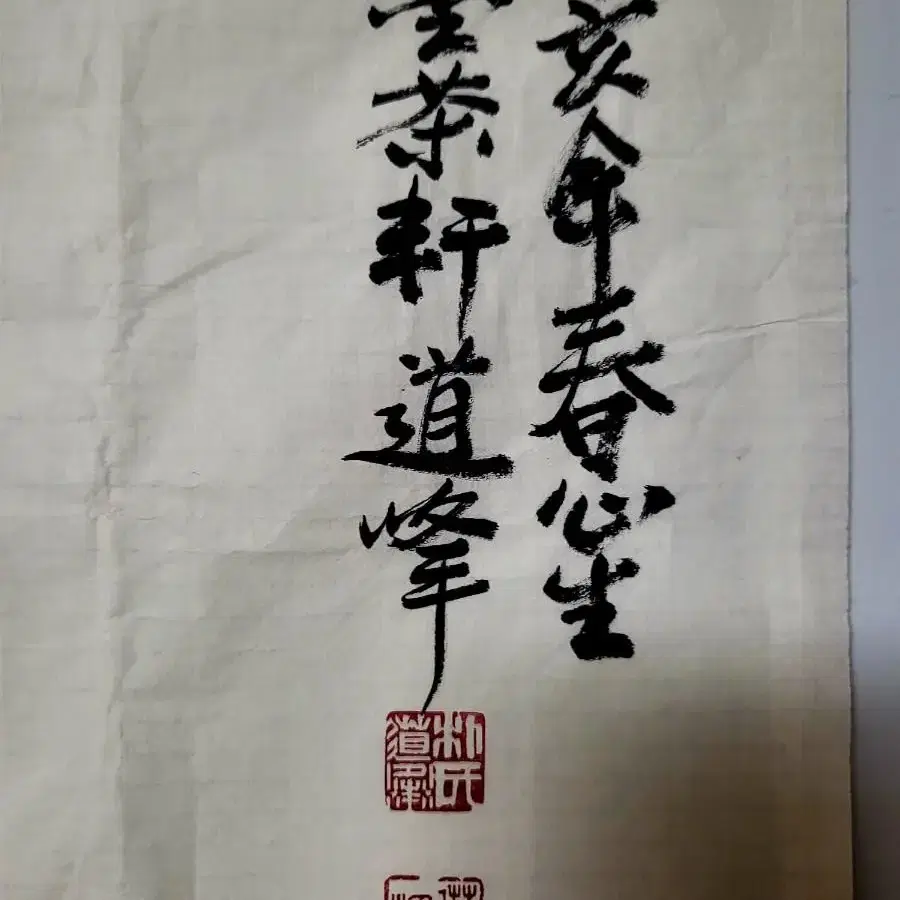 亥年春心生
茶軒道峰
朴氏
道